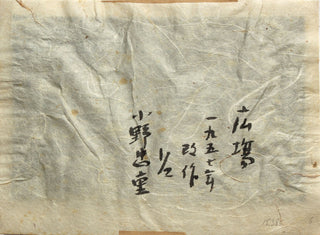 広場
一九五七年
改作
小野忠重